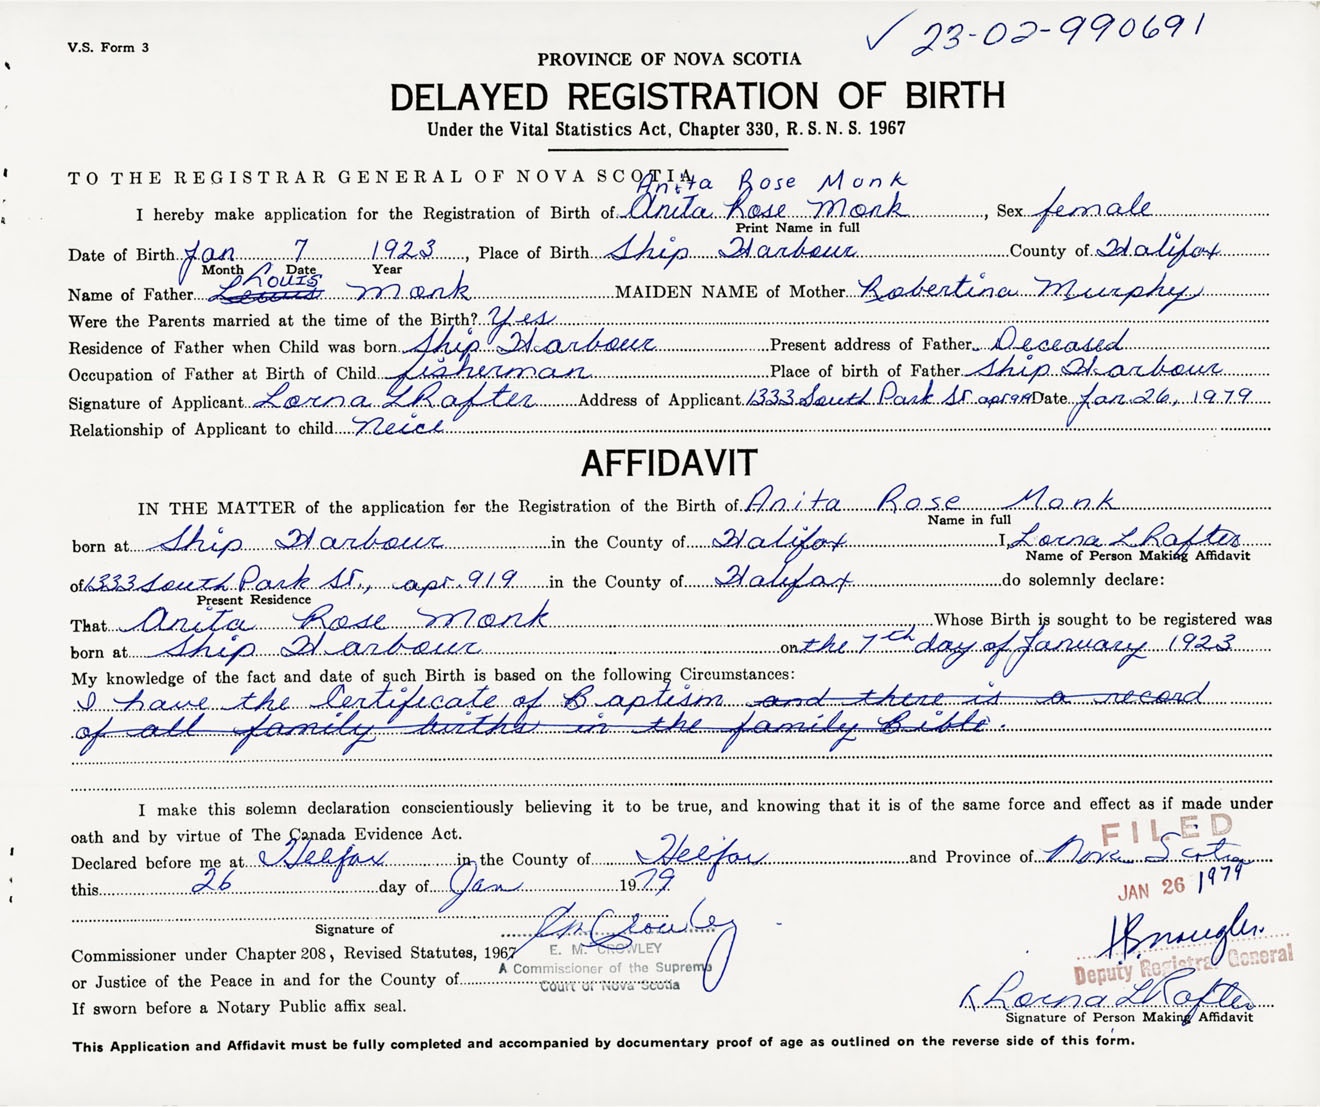 V.S. Form 3
✓ 23-02-990691
PROVINCE OF NOVA SCOTIA
DELAYED REGISTRATION OF BIRTH
Under the Vital Statistics Act, Chapter 330, R. S. N. S. 1967
TO THE REGISTRAR GENERAL OF NOVA SCOTIA
Anita Rose Monk
I hereby make application for the Registration of Birth of Anita Rose Monk, Sex female
Print Name in full
Date of Birth Jan 7 1923, Place of Birth Ship Harbour County of Halifax
Month Date Year
Louis
Name of Father Monk MAIDEN NAME of Mother Robertina Murphy
Were the Parents married at the time of the Birth? Yes
Residence of Father when Child was born Ship Harbour Present address of Father Deceased
Occupation of Father at Birth of Child fisherman Place of birth of Father Ship Harbour
Signature of Applicant Lorna L Rafter Address of Applicant 1333 South Park St. apr 919 Date Jan 26, 1979
Relationship of Applicant to child Neice
AFFIDAVIT
IN THE MATTER of the application for the Registration of the Birth of Anita Rose Monk
Name in full
born at Ship Harbour in the County of Halifax I, Lorna L Rafter
Name of Person Making Affidavit
of 1333 South Park St., apr. 919 in the County of Halifax do solemnly declare:
Present Residence
That Anita Rose Monk Whose Birth is sought to be registered was
born at Ship Harbour on the 7th day of January 1923
My knowledge of the fact and date of such Birth is based on the following Circumstances:
I have the Certificate of Baptism and there is a record
of all family births in the family Bible.
I make this solemn declaration conscientiously believing it to be true, and knowing that it is of the same force and effect as if made under
oath and by virtue of The Canada Evidence Act.
FILED
Declared before me at Halifax in the County of Halifax and Province of Nova Scotia
this 26 day of Jan 1979
JAN 26 1979
Signature of
Commissioner under Chapter 208, Revised Statutes, 1967
E. M. CROWLEY
A Commissioner of the Supreme
Court of Nova Scotia
or Justice of the Peace in and for the County of
Deputy Registrar General
If sworn before a Notary Public affix seal.
x Lorna L Rafter
Signature of Person Making Affidavit
This Application and Affidavit must be fully completed and accompanied by documentary proof of age as outlined on the reverse side of this form.